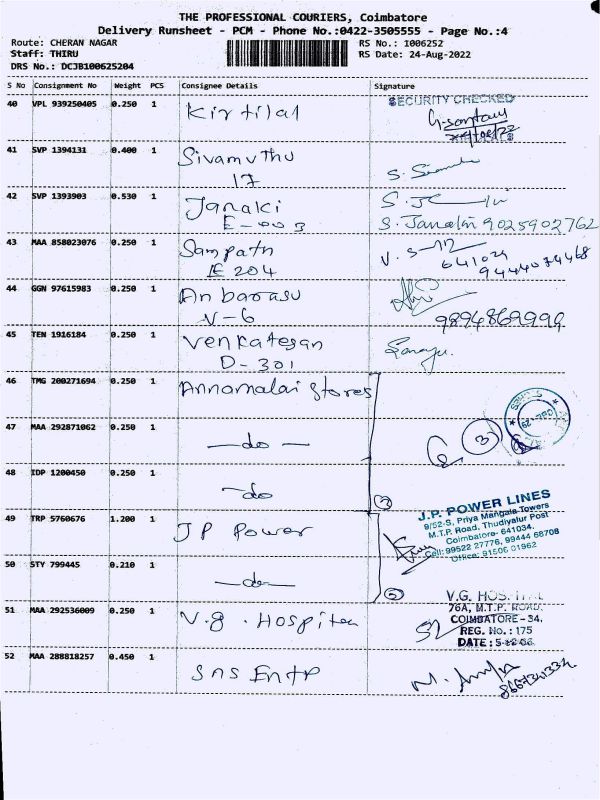 THE PROFESSIONAL COURIERS, Coimbatore
Delivery Runsheet - PCM - Phone No.:0422-3505555 - Page No.:4
Route: CHERAN NAGAR RS No.: 1006252
Staff: THIRU RS Date: 24-Aug-2022
DRS No.: DCJB100625204
S No Consignment No Weight PCS Consignee Details Signature
40 VPL 939250405 0.250 1 Kirtilal SECURITY CHECKED
41 SVP 1394131 0.400 1 Sivamuthu
17
42 SVP 1393903 0.530 1 Janaki
E-003 S. Janakin 9025902762
43 MAA 858023076 0.250 1 Sampath
E 204 641029
9444074468
44 GGN 97615983 0.250 1 Anbarasu
V-6 9894869999
45 TEN 1916184 0.250 1 Venkatesan
D-301
46 TMG 200271694 0.250 1 Annamalai Stores
47 MAA 292871062 0.250 1 -do- 3
48 IDP 1200450 0.250 1 -do
49 TRP 5760676 1.200 1 JP Power J.P. POWER LINES
9/52-S, Priya Mangala Towers
M.T.P. Road, Thudiyalur Post
Coimbatore- 641034.
Cell: 99522 27776, 99444 68708
Office: 91506 01962
50 STY 799445 0.210 1 -do-
51 MAA 292536009 0.250 1 V.g. Hospital V.G. HOSPITAL
76A, M.T.P. ROAD,
COIMBATORE - 34.
REG. No. : 175
52 MAA 288818257 0.450 1 SnS Entp